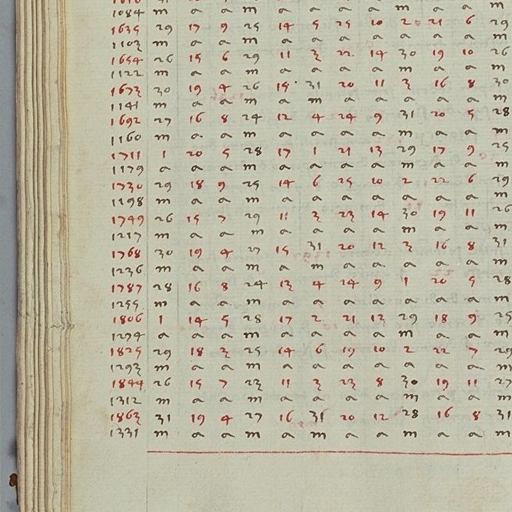 1084 m a a m a a a a m a a m
1635 29 17 9 25 14 5 25 10 2 21 6 29
1103 m a a m a a a a a a a m
1654 26 15 6 29 11 3 22 14 30 19 10 26
1122 m a a m a a a a m a a m
1673 30 19 4 26 15 31 20 11 3 16 8 30
1141 m a a m a m a a a a a m
1692 27 16 8 24 12 4 24 9 31 20 5 28
1160 m a a m a a a a m a a m
1711 1 20 5 28 17 1 21 13 29 17 9 25
1179 a a a m a a a a m a a m
1730 29 18 9 25 14 6 25 10 2 22 6 29
1198 m a a m a a a a a a a m
1749 26 15 7 29 11 3 23 14 30 19 11 26
1217 m a a m a a a a m a a m
1768 30 19 4 27 15 31 20 12 3 16 8 31
1236 m a a m a m a a a a a m
1787 28 16 8 24 13 4 24 9 1 20 5 28
1255 m a a m a a a a a a a m
1806 1 14 5 28 17 2 21 13 29 18 9 25
1274 a a a m a a a a m a a m
1825 29 18 3 25 14 6 19 10 2 22 7 29
1293 m a a m a a a a a a a m
1844 26 15 7 23 11 3 23 8 30 19 11 27
1312 m a a m a a a a m a a m
1863 31 19 4 27 16 31 20 12 28 16 8 31
1331 m a a m a m a a m a a m